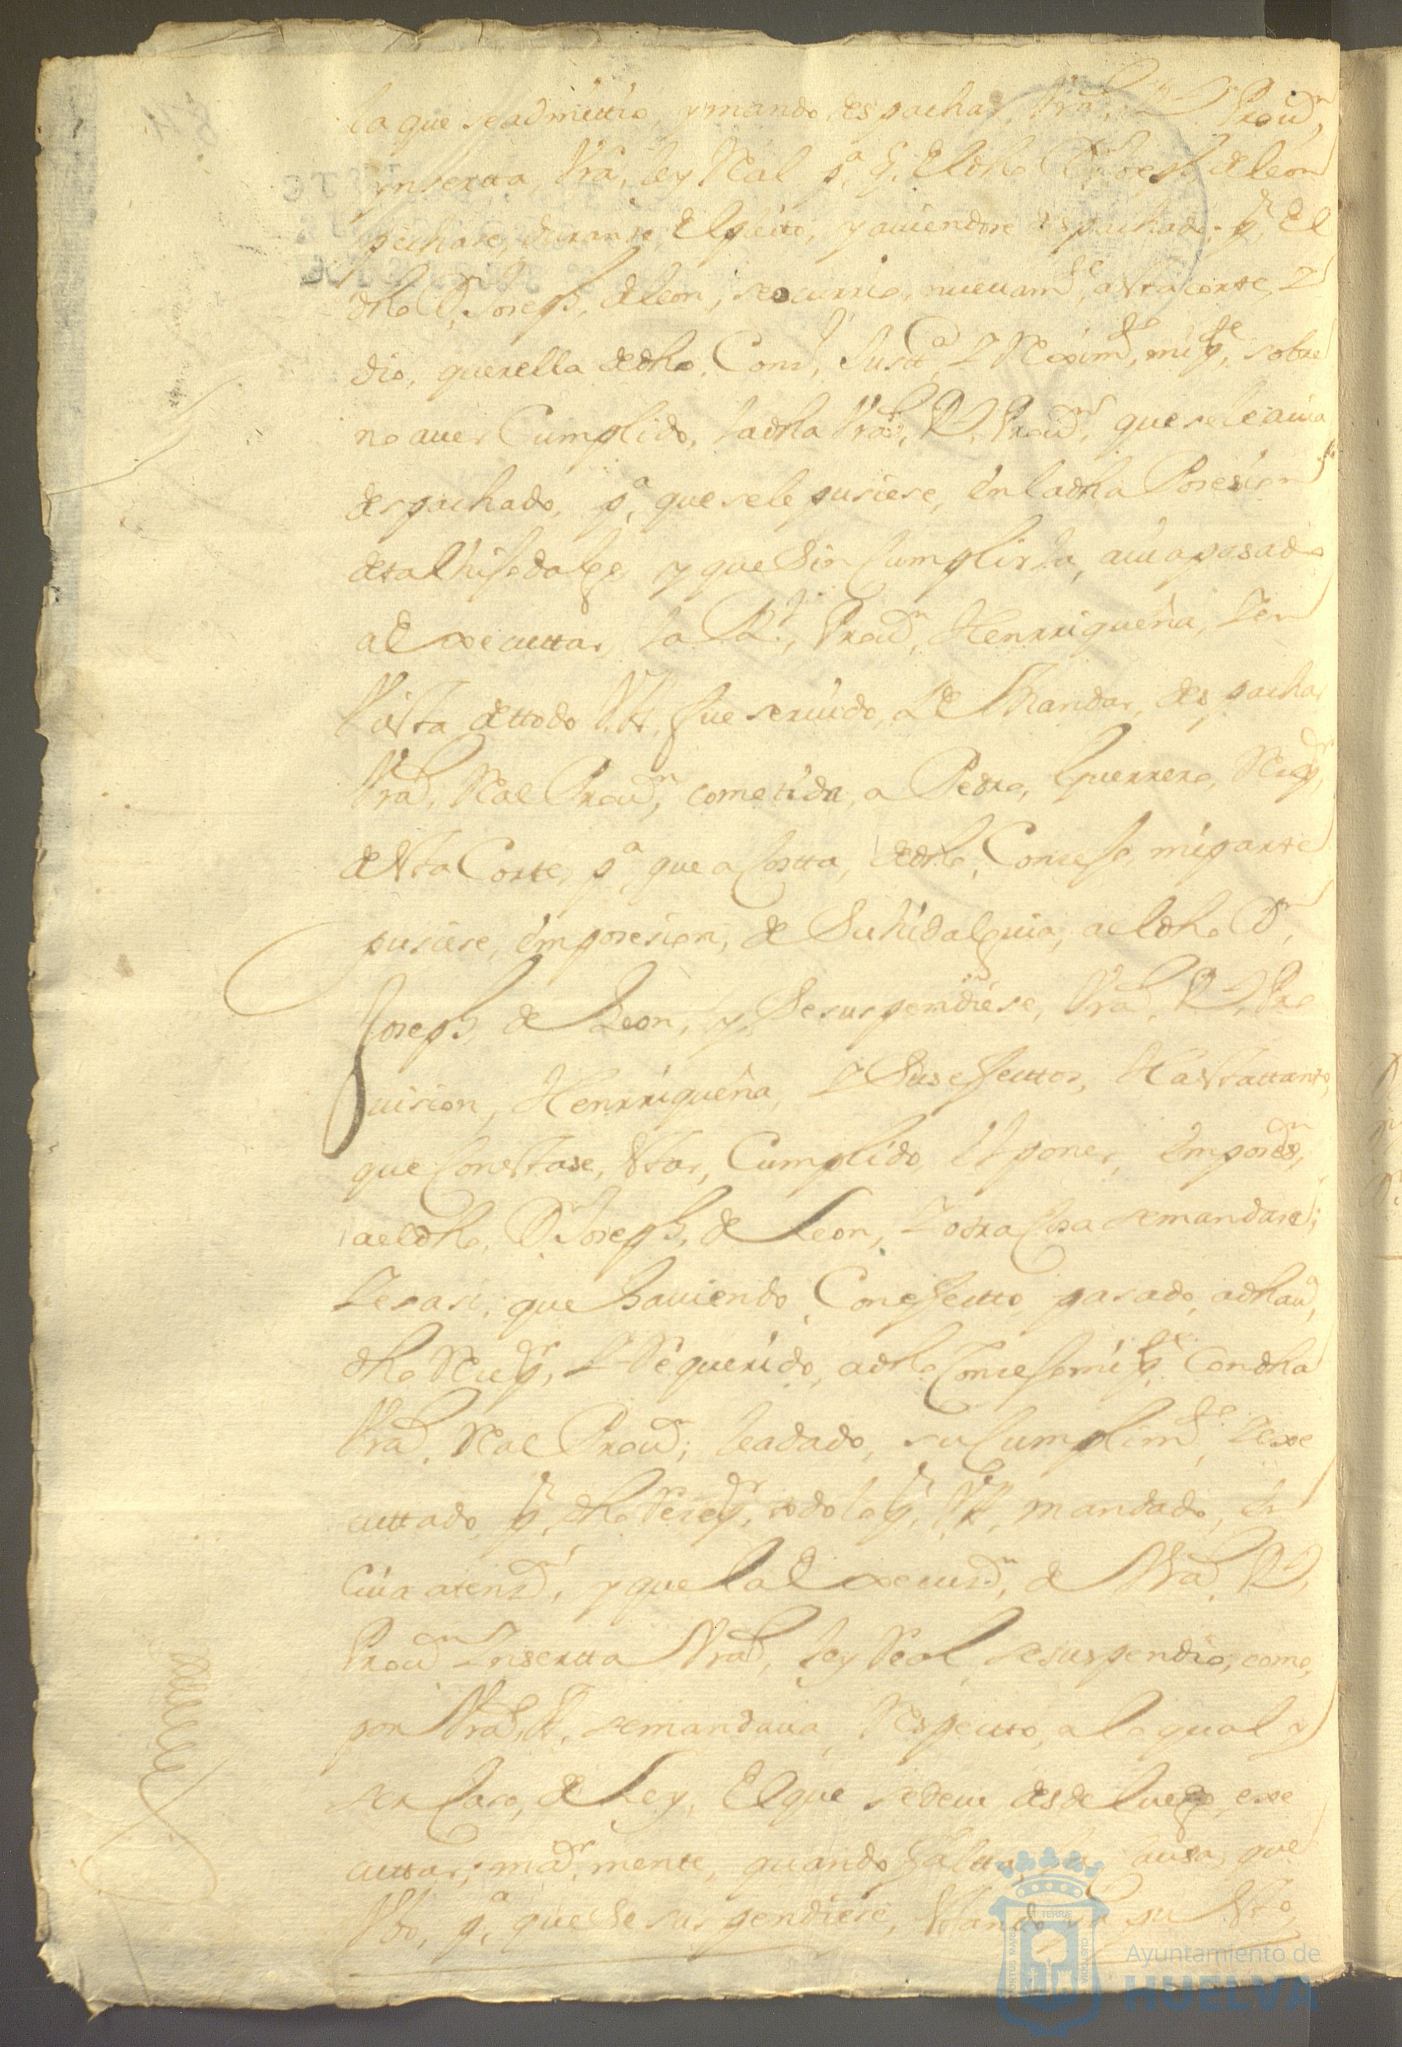 la que se admittio, y mando despachar, Vra, R Prou.n
ynsertta, Vra, ley Real p.a q. El dho D.n Joseph de leon
pechase, durante, El pleito, y auiendose despachado, p.r El
dho D.n Joseph, de leon, se ocurrio, nueuam.te, a Vta corte, Y
dio, querella de dho, Conz.o, Justt.a, Y Rexim.to, mi p.te, sobre
no auer Cumplido, la dha Vra, R, Prou.n, que se le auia
despachado, p.a que se le pusiese, En la dha Posesion
de tal hijodalgo, y que Sin Cumplirla, auia pasado
a Executtar, la R.l, Prou.n, Henrriqueña, Y en
Vista de ttodo V.A. fue seruido, de Mandar, despachar
Vra, Real Prou.n, cometida, a Pedro, Guerrero, Rez.r,
de Vta Corte, p.a que a Costta, de dho, Concejo, mi parte
pusiese, em posesion, de Su hidalguia, ael dho D.n,
Joseph, de Leon, y, Se suspendiese, Vra, R, Pro
uision, Henrriqueña, Y Sus efecttos, Hasta ttanto,
que Constase, Vtar, Cumplido, El poner, Em poses.n,
ael dho, D.n Joseph, de Leon, Y otra Cosa se mandase;
Y es asi, que hauiendo, Con efectto, pasado, a dha uilla,
dho Rez.r, Y Requerido, a dho Concejo mi p.te, Con dha
Vra, Real Prou.n; le a dado, su Cumplim.to, Y exe
cuttado p.r dho Rez.r, todo lo q. V.A, mandado, En
Cuia atenz.n, y que la Execuz.n, de Vra, R,
Prou.n Ynsertta Vra, ley Real, se suspendio, como,
por Vra, A, se mandaua, Respectto, a lo qual y
ser Caso, de Ley, El que se deue desde luego, exe
cuttar, maior mente, quando falta, la causa, que
Vbo, p.a, que Se suspendiese, Vtando en su Vto,
Ayuntamiento de
HUELVA